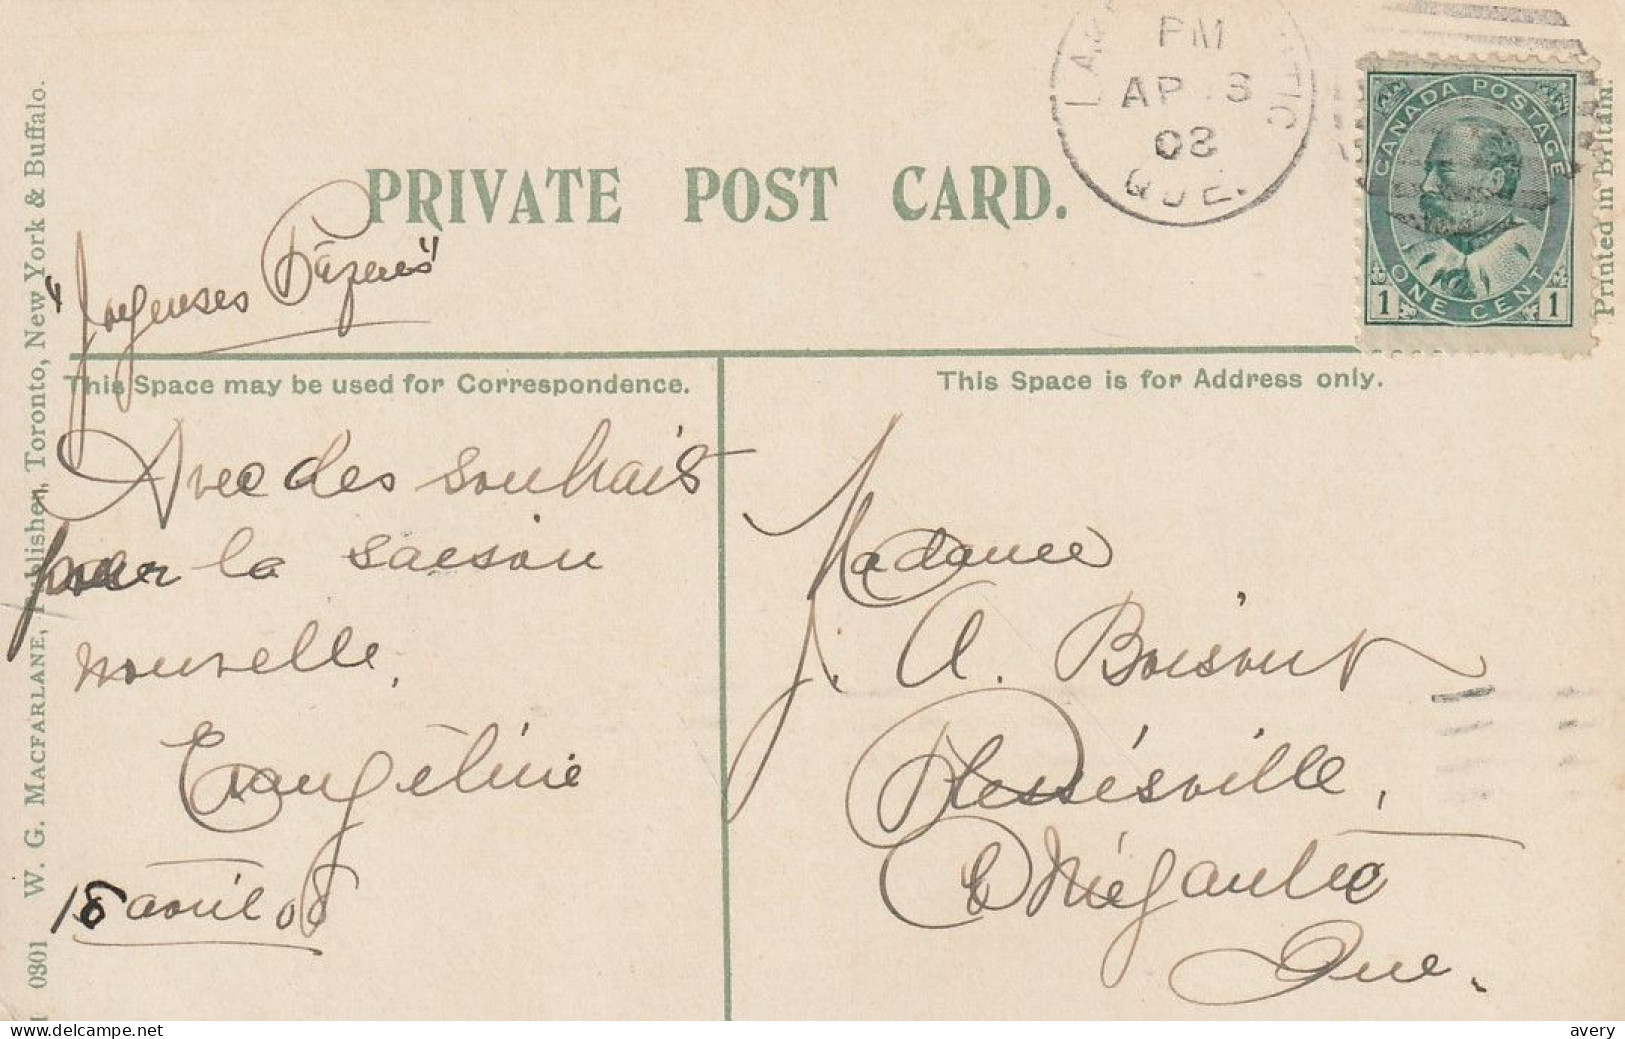 PM
AP 8
08
QUE.
CANADA POSTAGE
ONE CENT
1 1
Printed in Britain.
PRIVATE POST CARD.
"Joyeuses Pâques"
This Space may be used for Correspondence.
This Space is for Address only.
Avec des souhaits
pour la saison
nouvelle.
Evangéline
18 avril 08
Madame
J. A. Boisvert
Plessisville,
Co Mégantic
Que.
0301 W. G. MACFARLANE, Publisher, Toronto, New York & Buffalo.
www.delcampe.net
avery